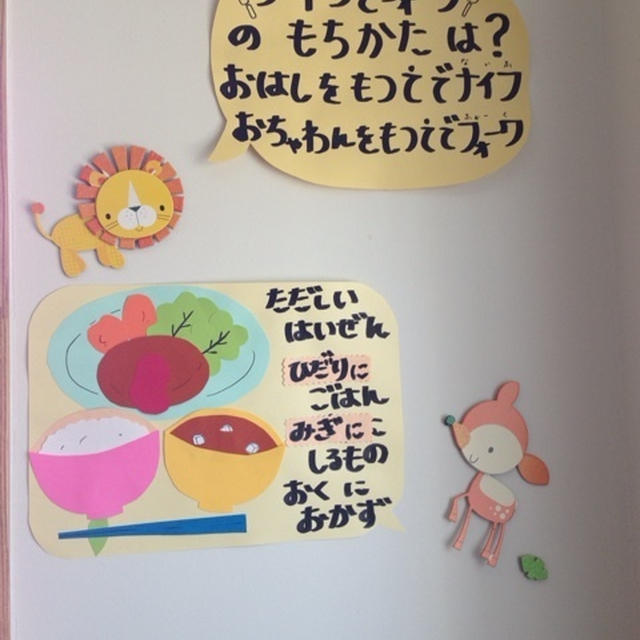 ナイフとフォーク
の もちかた は?
おはしをもつてでナイフ
おちゃわんをもつてでフォーク
ただしい
はいぜん
ひだりに
ごはん
みぎにこ
しるもの
おくに
おかず